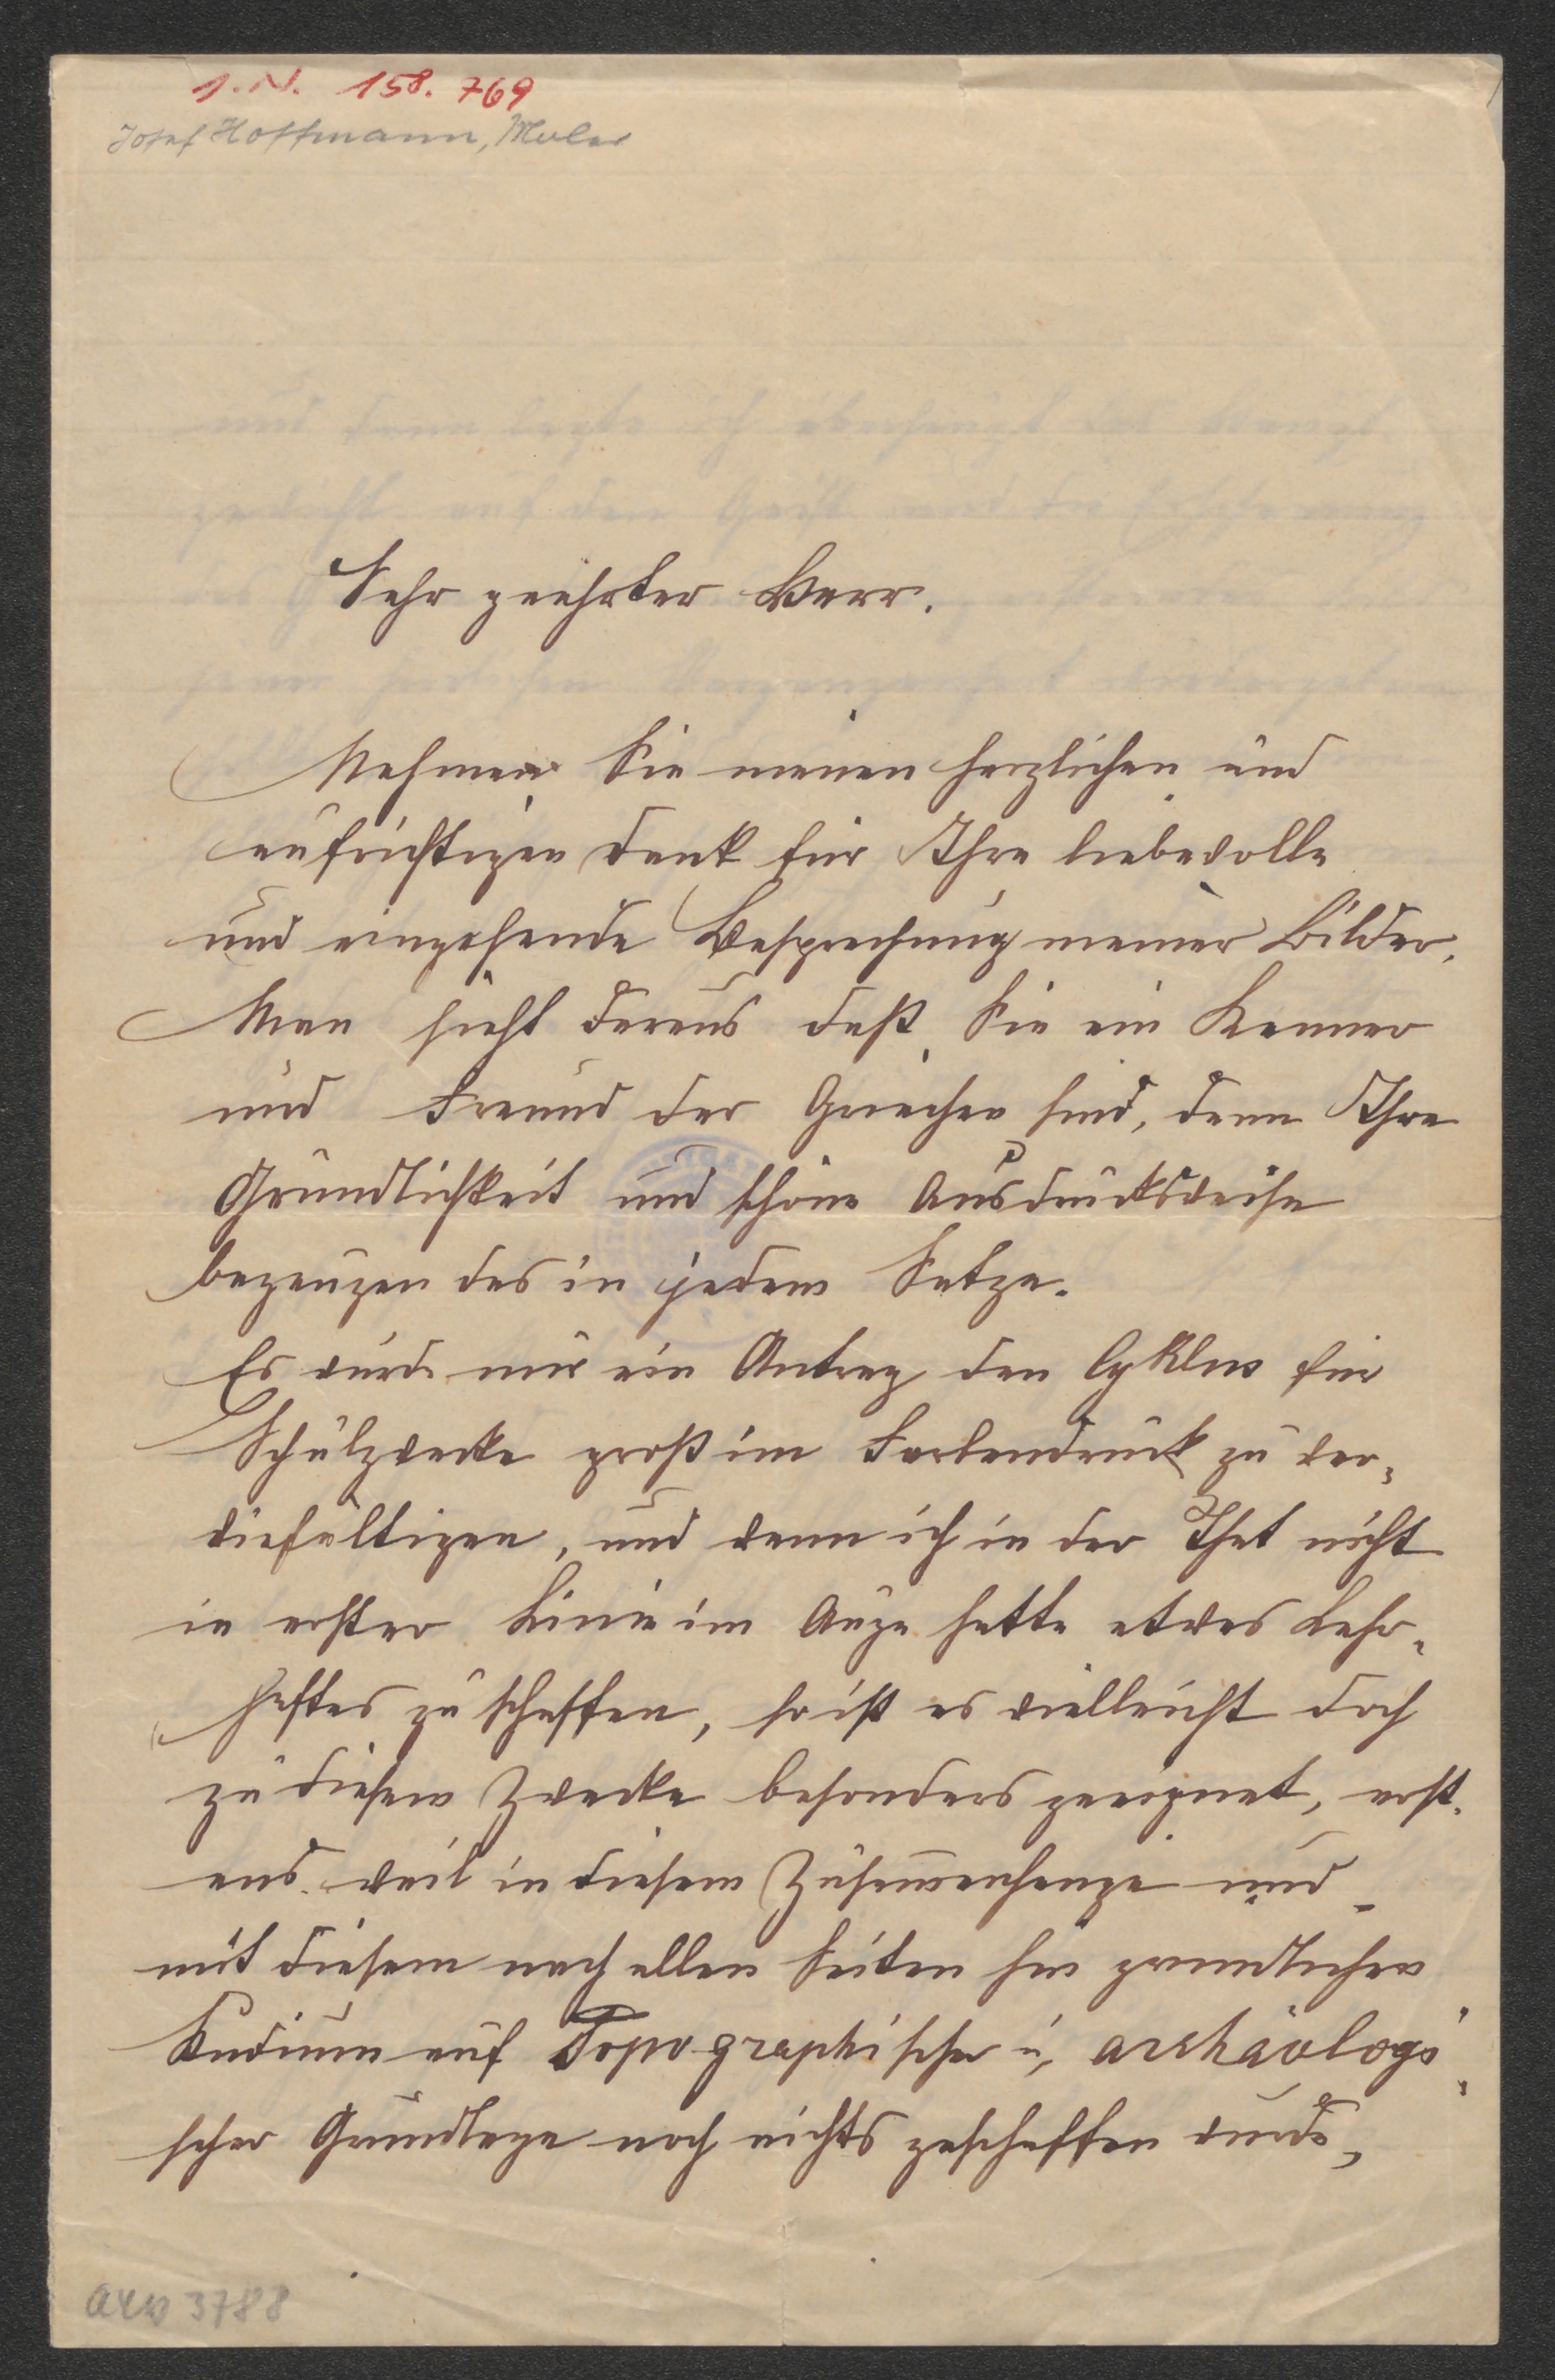 J.N. 158.769
Josef Hoffmann, Maler
Sehr geehrter Herr.
Nehmen Sie meinen herzlichen und
aufrichtigen Dank für Ihre liebevolle
und eingehende Besprechung meiner Bilder.
Man sieht daraus daß Sie ein Kenner
und Freund der Griechen sind, denn Ihre
Gründlichkeit und schöne Ausdrucksweise
bezeugen das in jedem Satze.
Es wurde mir ein Antrag den Cyklus für
Schulzwecke groß im Farbendruck zu ver-
vielfältigen, und wenn ich in der That nicht
in erster Linie im Auge hatte etwas Lehr-
haftes zu schaffen, so ist es vielleicht doch
zu diesem Zwecke besonders geeignet, erst-
ens weil in diesem Zusammenhange und
mit diesem nach allen Seiten hin gründlichen
Studium auf Topographischer u. archäologi-
scher Grundlage noch nichts geschaffen wurde,
AKW 3788